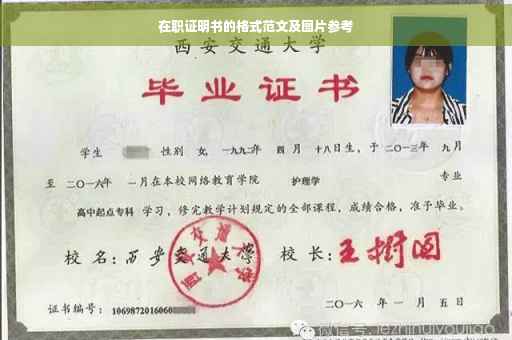 在职证明书的格式范文及图片参考
西安交通大学
毕业证书
学生 性别 女, 一九九二年 四月 十八日生, 于 二〇一三年 九月
至 二〇一六年 一月在本校网络教育学院 护理学 专业
高中起点专科 学习, 修完教学计划规定的全部课程, 成绩合格, 准予毕业。
校 名: 西安交通大学 校 长: 王树国
证书编号: 1069872016060
二〇一六 年 一 月 五 日
微信号: jezhihuiyoujiao